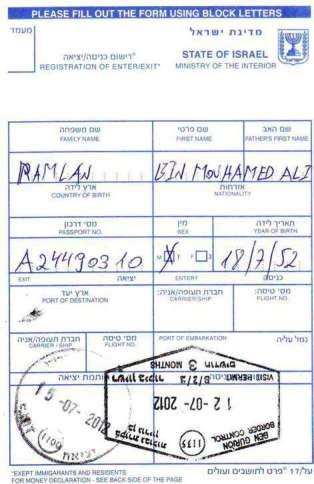 PLEASE FILL OUT THE FORM USING BLOCK LETTERS
מעמד
"רישום כניסה/יציאה
REGISTRATION OF ENTER/EXIT"
מדינת ישראל
STATE OF ISRAEL
MINISTRY OF THE INTERIOR
שם משפחה
FAMILY NAME
שם פרטי
FIRST NAME
שם האב
FATHER'S FIRST NAME
RAMLAN
BIN MOUHAMED ALI
ארץ לידה
COUNTRY OF BIRTH
אזרחות
NATIONALITY
מס' דרכון
PASSPORT NO.
מין
SEX
תאריך לידה
YEAR OF BIRTH
A24490310
M X F
18/7/52
EXIT
יציאה
ENTERY
כניסה
ארץ יעד
PORT OF DESTINATION
חברת תעופה/אניה:
CARRIER/SHIP
מס' טיסה:
FLIGHT NO.
חברת תעופה/אניה
CARRIER / SHIP
מס' טיסה
FLIGHT NO.
PORT OF EMBARKATION
נמל עליה
חותמת יציאה
15-07-2012
רשיון ביקור
3 MONTHS חודשים
VISIT PERMIT
B/2/ב
12-07-2012
ביקורת גבולות
בן גוריון
BEN GURION
BORDER CONTROL
על/17 "פרט לתושבים ועולים
"EXEPT IMMIGRANTS AND RESIDENTS
FOR MONEY DECLARATION - SEE BACK SIDE OF THE PAGE